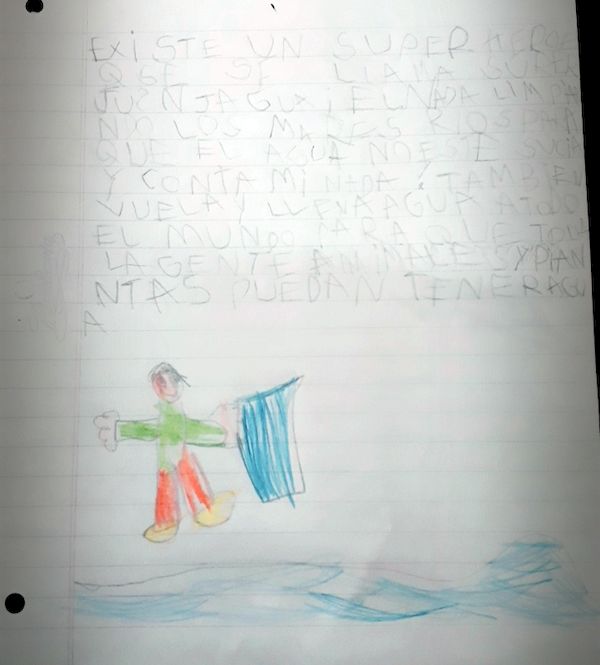 EXiSTE UN SUPER HEROE
QUE SE LLAMA SUPER
JUSNJAGUA ¡ EL NADA LIMPIA
NDO LOS MARES RIOS PARA
QUE EL AGUA NO ESTE SUCIA
Y CONTAMINADA ¡ TAMBIEN
VUELA Y LLEVA AGUA A TODO
EL MUNDO PARA QUE TODA
LA GENTE ANIMALES Y PLAN
NTAS PUEDAN TENER AGU
A